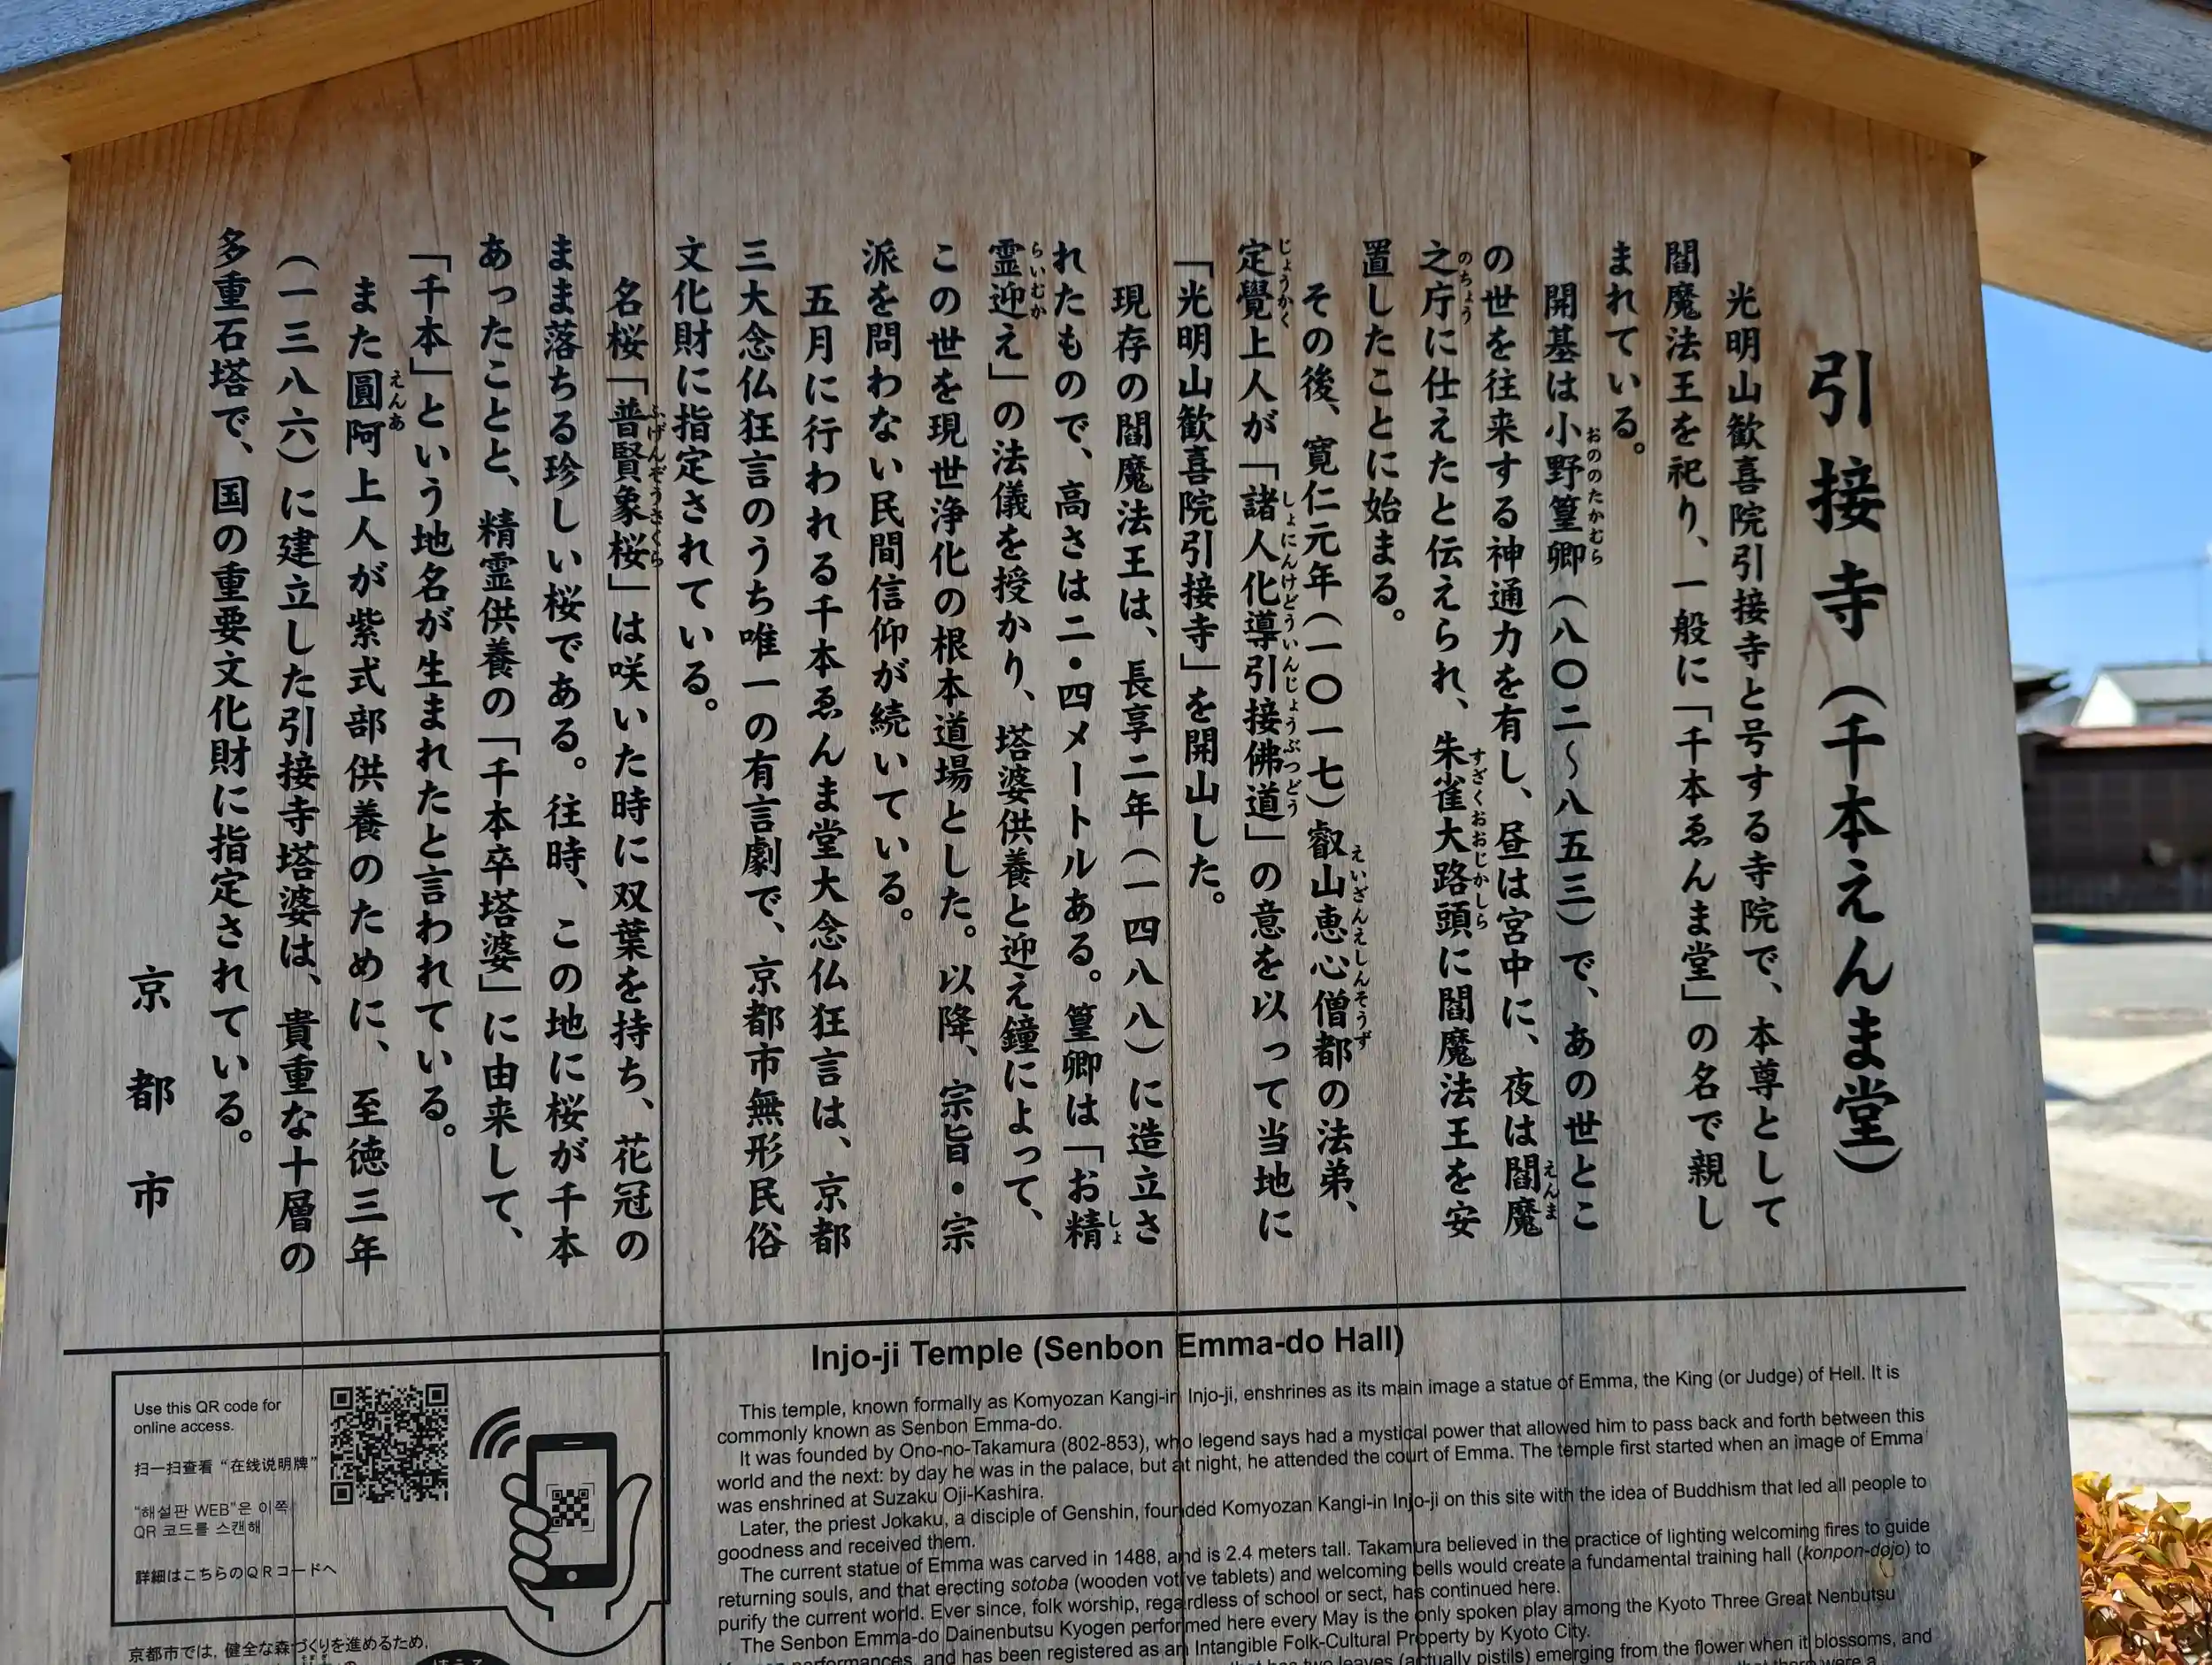 引接寺（千本えんま堂）
光明山歓喜院引接寺と号する寺院で、本尊として
閻魔法王を祀り、一般に「千本ゑんま堂」の名で親し
まれている。
開基は小野篁卿（八〇二～八五三）で、あの世とこ
おののたかむら
の世を往来する神通力を有し、昼は宮中に、夜は閻魔
えんま
之庁に仕えたと伝えられ、朱雀大路頭に閻魔法王を安
のちょう
すざくおおじかしら
置したことに始まる。
その後、寛仁元年（一〇一七）叡山恵心僧都の法弟、
えいざんえしんそうず
定覺上人が「諸人化導引接佛道」の意を以って当地に
じょうかく
しょにんけどういんじょうぶつどう
「光明山歓喜院引接寺」を開山した。
現存の閻魔法王は、長享二年（一四八八）に造立さ
れたもので、高さは二・四メートルある。篁卿は「お精
しょ
霊迎え」の法儀を授かり、塔婆供養と迎え鐘によって、
らいむか
この世を現世浄化の根本道場とした。以降、宗旨・宗
派を問わない民間信仰が続いている。
五月に行われる千本ゑんま堂大念仏狂言は、京都
三大念仏狂言のうち唯一の有言劇で、京都市無形民俗
文化財に指定されている。
名桜「普賢象桜」は咲いた時に双葉を持ち、花冠の
ふげんぞうさくら
まま落ちる珍しい桜である。往時、この地に桜が千本
あったことと、精霊供養の「千本卒塔婆」に由来して、
「千本」という地名が生まれたと言われている。
また圓阿上人が紫式部供養のために、至徳三年
えんあ
（一三八六）に建立した引接寺塔婆は、貴重な十層の
多重石塔で、国の重要文化財に指定されている。
京都市
Injo-ji Temple (Senbon Emma-do Hall)
This temple, known formally as Komyozan Kangi-in Injo-ji, enshrines as its main image a statue of Emma, the King (or Judge) of Hell. It is
commonly known as Senbon Emma-do.
It was founded by Ono-no-Takamura (802-853), who legend says had a mystical power that allowed him to pass back and forth between this
world and the next: by day he was in the palace, but at night, he attended the court of Emma. The temple first started when an image of Emma
was enshrined at Suzaku Oji-Kashira.
Later, the priest Jokaku, a disciple of Genshin, founded Komyozan Kangi-in Injo-ji on this site with the idea of Buddhism that led all people to
goodness and received them.
The current statue of Emma was carved in 1488, and is 2.4 meters tall. Takamura believed in the practice of lighting welcoming fires to guide
returning souls, and that erecting sotoba (wooden votive tablets) and welcoming bells would create a fundamental training hall (konpon-dojo) to
purify the current world. Ever since, folk worship, regardless of school or sect, has continued here.
The Senbon Emma-do Dainenbutsu Kyogen performed here every May is the only spoken play among the Kyoto Three Great Nenbutsu
performances, and has been registered as an Intangible Folk-Cultural Property by Kyoto City.
that has two leaves (actually pistils) emerging from the flower when it blossoms, and
that there were a
Use this QR code for
online access.
扫一扫查看“在线说明牌”
"해설판 WEB"은 이쪽
QR 코드를 스캔해
詳細はこちらのQRコードへ
京都市では、健全な森づくりを進めるため、